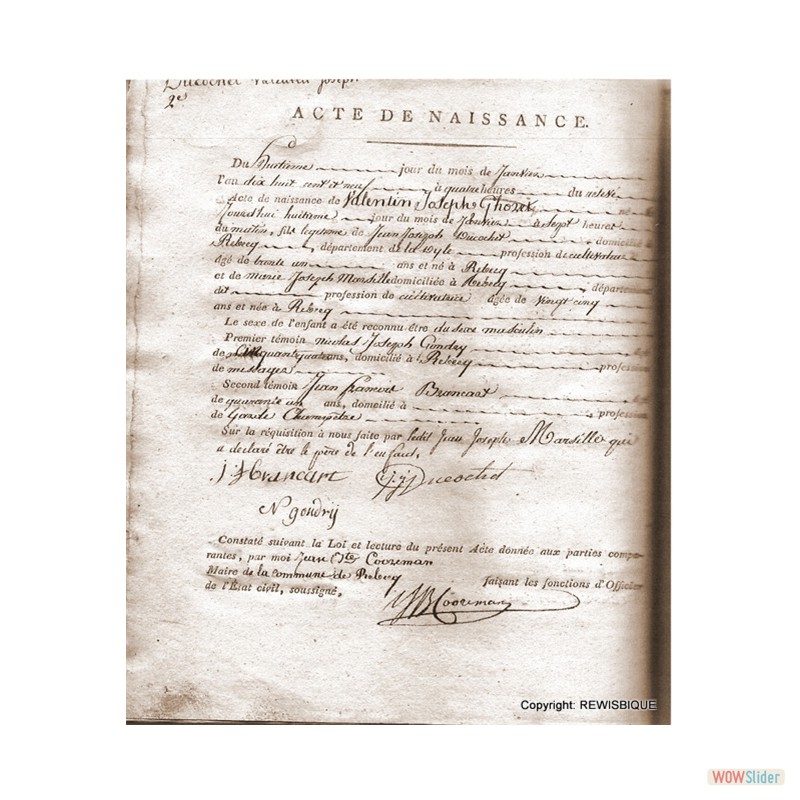 Ducochet Valentin Joseph
2e
ACTE DE NAISSANCE.
Du huitieme jour du mois de Janvier
l'an dix huit cent et neuf à quatre heures du
Acte de naissance de Valentin Joseph né
jourd'hui huitieme jour du mois de Janvier à sept heures
du matin, fils legitime de Jean Joseph Ducochet domicilié
Rebecq département de la Dyle profession de cultivateur
âgé de trente un ans et né à Rebecq
et de marie Joseph Marsille domiciliée à Rebecq départem
dit profession de cultivatrice âgée de vingt cinq
ans et née à Rebecq
Le sexe de l'enfant a été reconnu être du sexe masculin
Premier témoin nicolas Joseph Gondry
de cinquante quatre ans, domicilié à Rebecq profess
de messager
Second témoin Jean francois Brancart
de quarante un ans, domicilié à profess
de Garde Champêtre
Sur la réquisition à nous faite par ledit Jean Joseph Marsille qui
a declaré être le père de l'enfant.
Brancart J J Ducochet
N gondrij
Constaté suivant la Loi et lecture du présent Acte donnée aux parties compa-
rantes, par moi Jean Bte Coozeman
Maire de la commune de Rebecq faisant les fonctions d'Officier
de l'État civil, soussigné,
JB Coozeman
Copyright: REWISBIQUE
WOWSlider